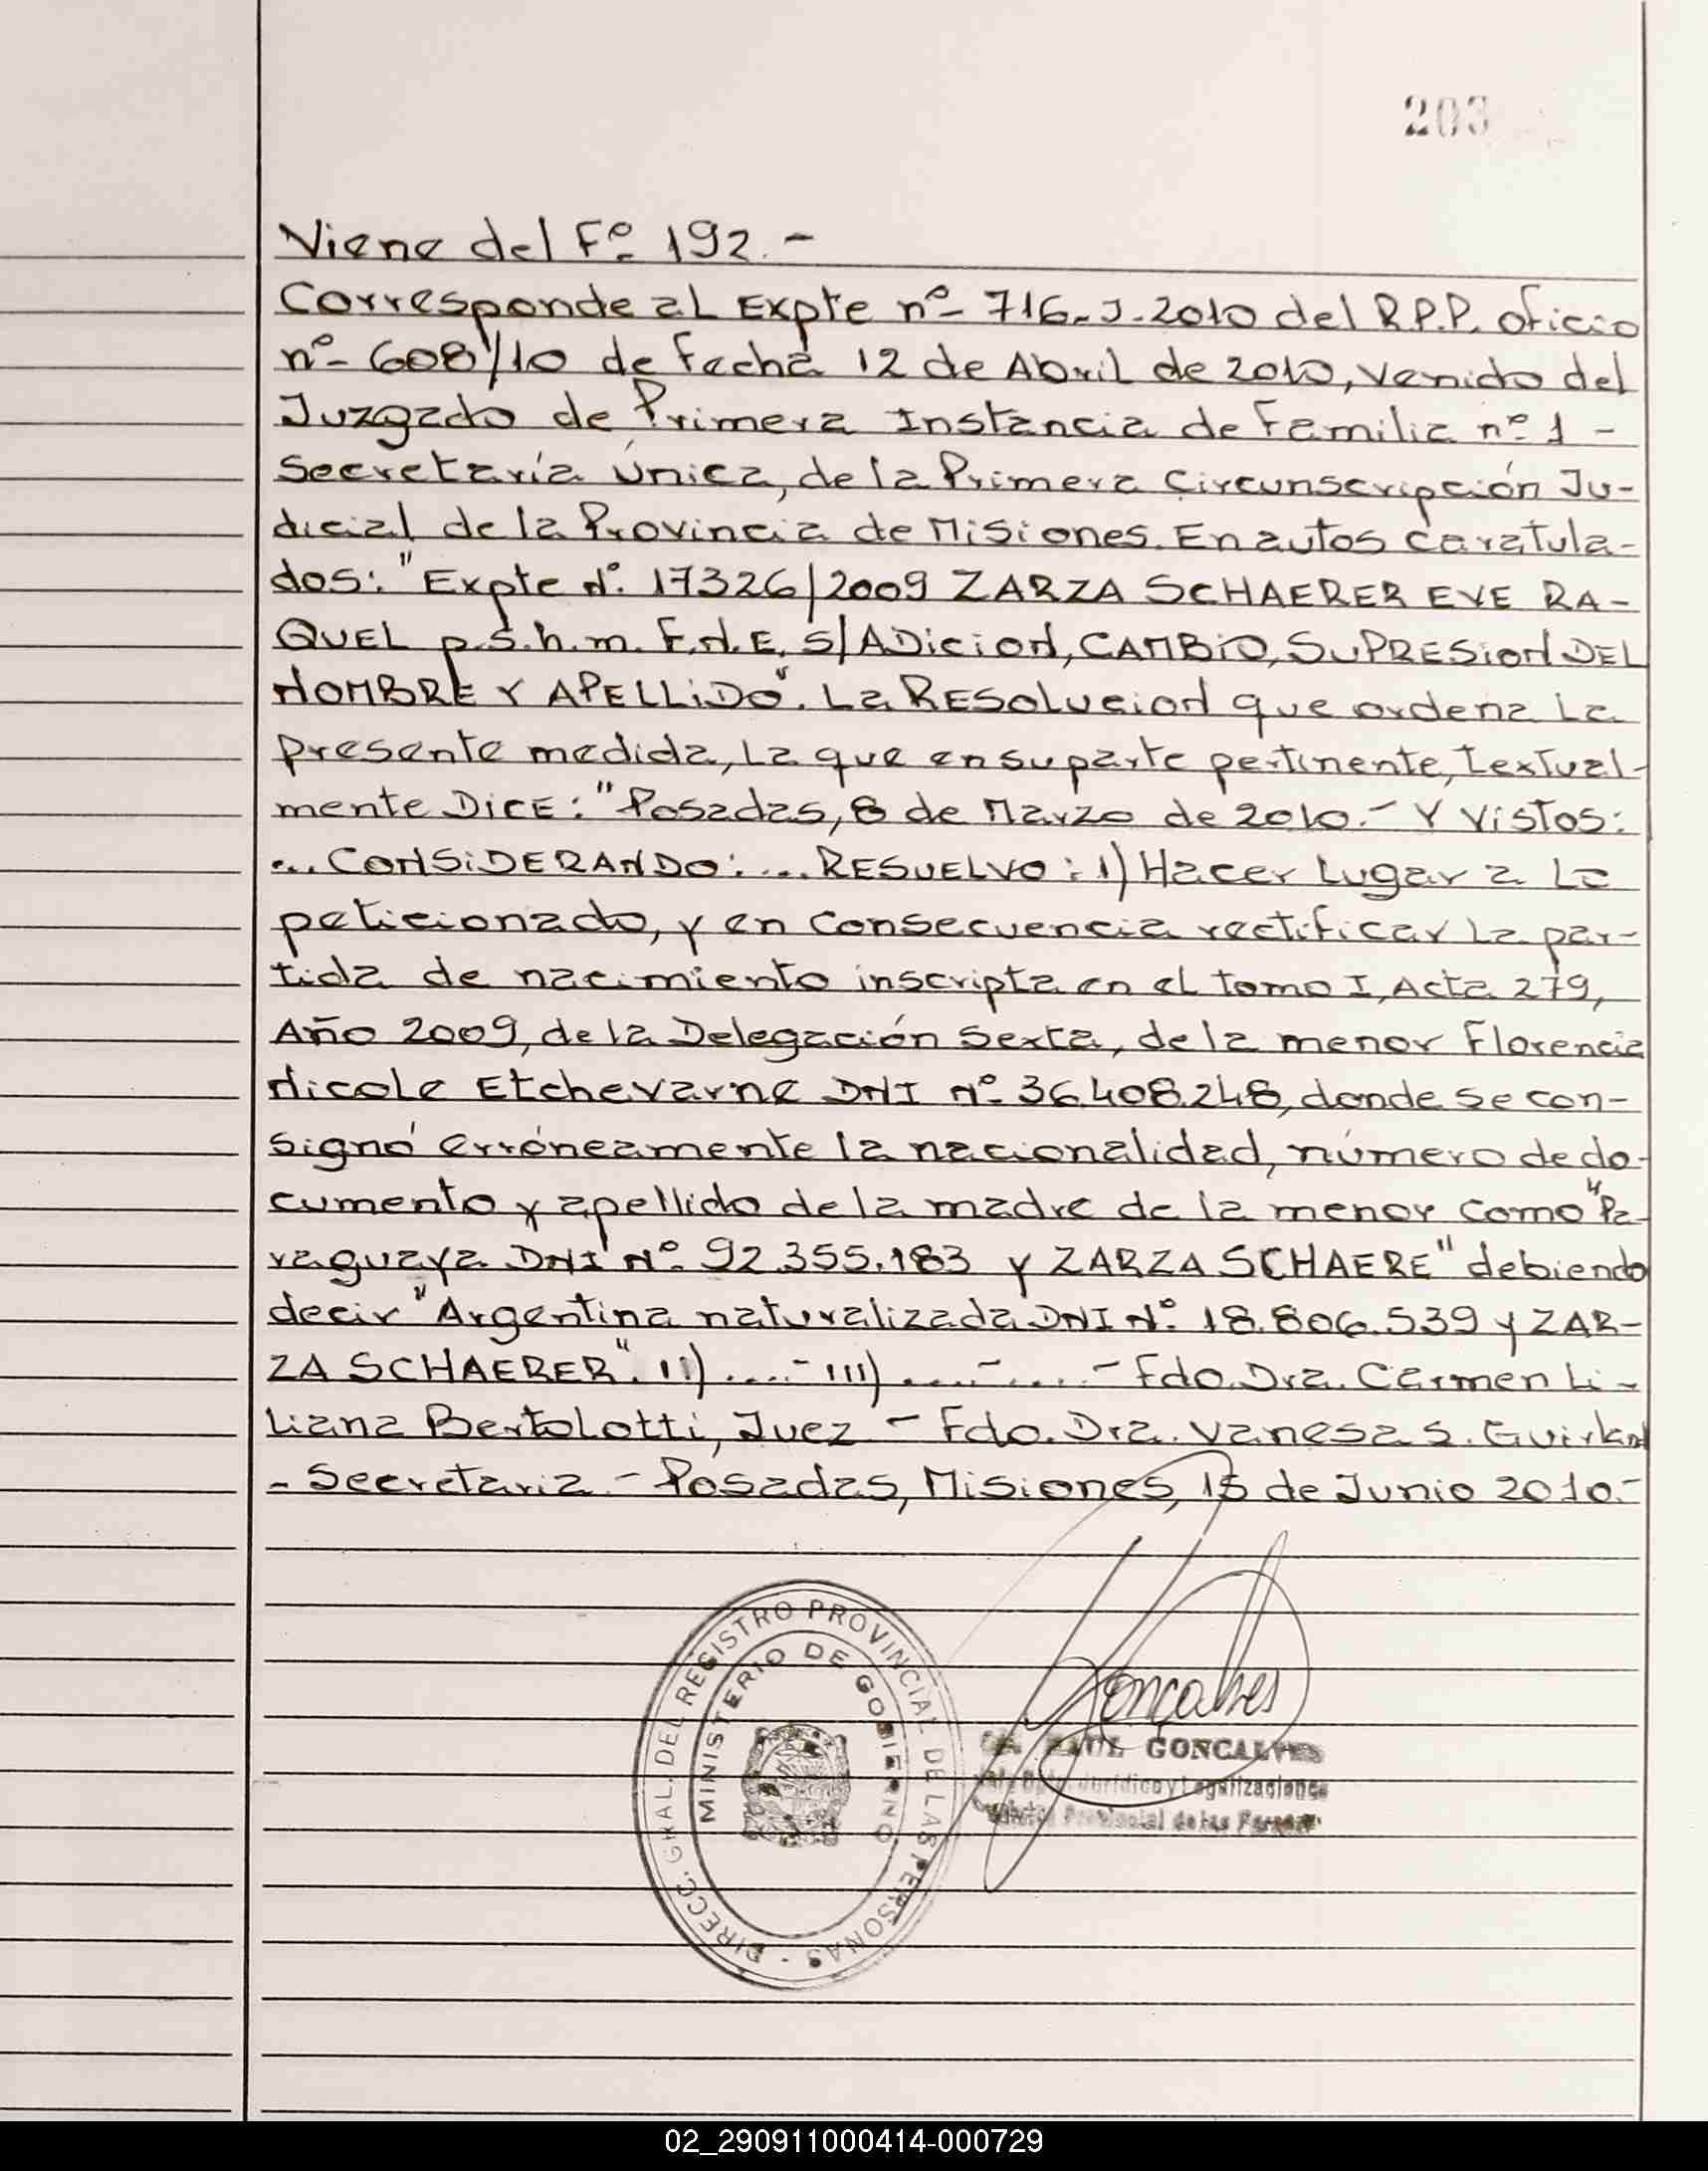 203
Viene del Fº 192.-
Corresponde al Expte nº- 716-J-2010 del R.P.P. oficio
nº- 608/10 de fecha 12 de Abril de 2010, venido del
Juzgado de Primera Instancia de Familia nº 1 -
Secretaría Única, de la Primera Circunscripción Ju-
dicial de la Provincia de Misiones. En autos caratula-
dos: "Expte Nº. 17326/2009 ZARZA SCHAERER EVE RA-
QUEL p.s.h.m. F.N.E. S/ADICION, CAMBIO, SUPRESION DEL
NOMBRE Y APELLIDO". La RESOLUCION que ordena La
presente medida, La que en su parte pertinente, textual-
mente DICE: "Posadas, 8 de Marzo de 2010.- Y VISTOS:
... CONSIDERANDO: ... RESUELVO: 1) Hacer Lugar a Lo
peticionado, y en consecuencia rectificar La par-
tida de nacimiento inscripta en el tomo I, Acta 279,
Año 2009, de la Delegación Sexta, de la menor Florencia
Nicole Etchevarne DNI Nº 36.408.248, donde se con-
signó erróneamente la nacionalidad, número de do-
cumento y apellido de la madre de la menor como "Pa-
raguaya DNI Nº. 92.355.183 y ZARZA SCHAERE" debiendo
decir "Argentina naturalizada DNI Nº. 18.806.539 y ZAR-
ZA SCHAERER". II) ....- III) ....-....- Fdo. Dra. Carmen Li-
liana Bertolotti, Juez - Fdo. Dra. Vanesa S.
- Secretaria - Posadas, Misiones, 15 de Junio 2010.-
DIRECC. GRAL. DEL REGISTRO PROVINCIAL DE LAS PERSONAS -
MINISTERIO DE GOBIERNO
Goncalves
RAUL GONCALVES
Jurídico y Legalizaciones
Provincial de las Personas
02_290911000414-000729